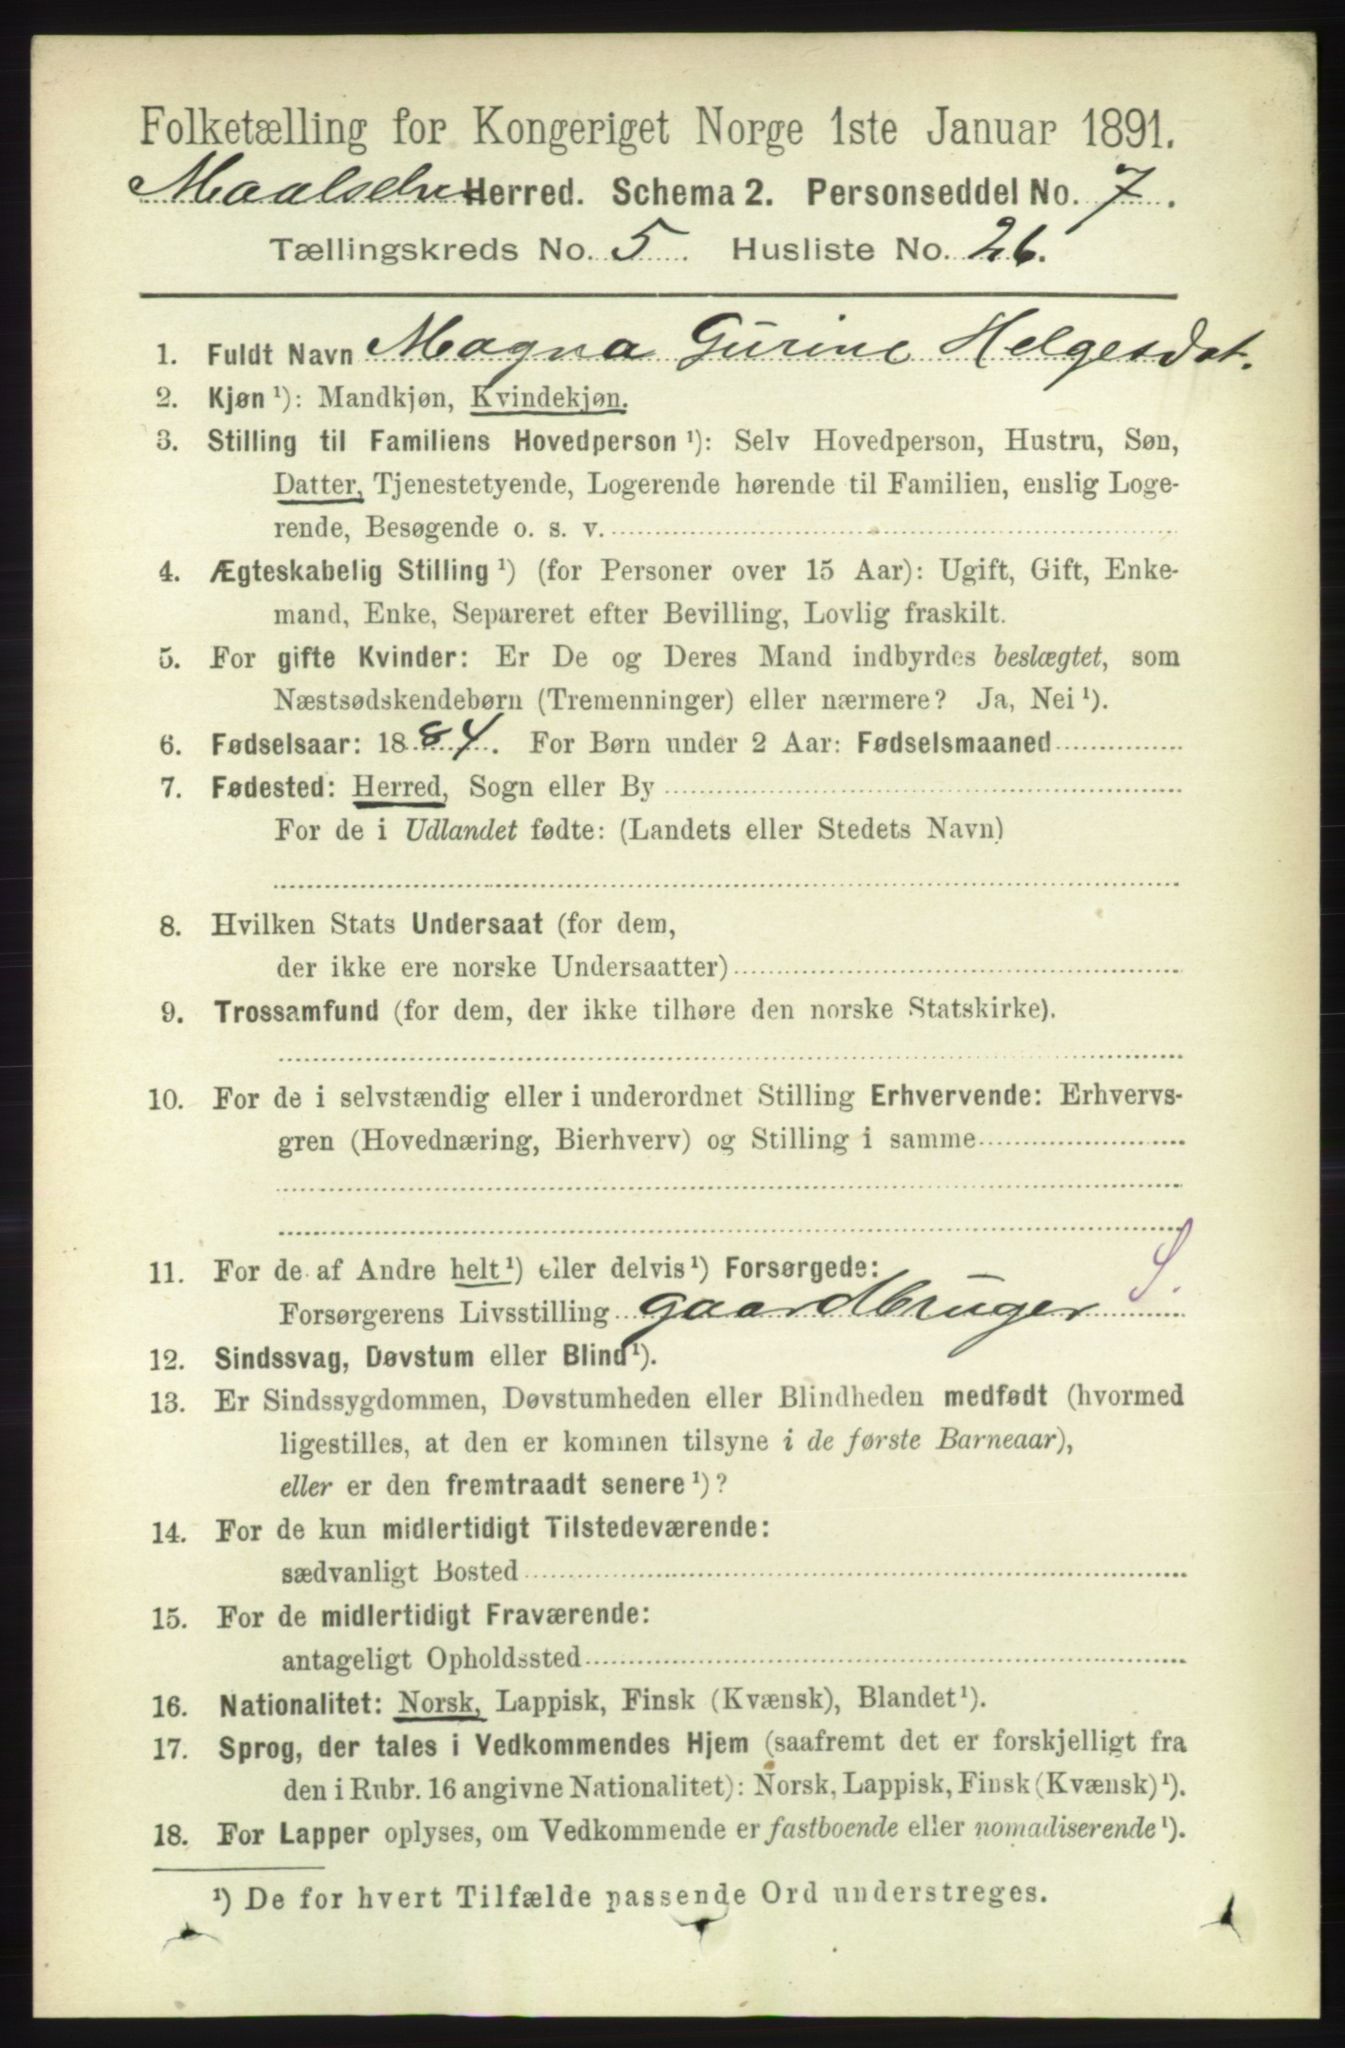 Folketælling for Kongeriget Norge 1ste Januar 1891.
Maalselv Herred. Schema 2. Personseddel No. 7.
Tællingskreds No. 5. Husliste No. 26.
1. Fuldt Navn Magna Gurine Helgesdat.
2. Kjøn ¹): Mandkjøn, Kvindekjøn.
3. Stilling til Familiens Hovedperson ¹): Selv Hovedperson, Hustru, Søn,
Datter, Tjenestetyende, Logerende hørende til Familien, enslig Loge-
rende, Besøgende o. s. v.
4. Ægteskabelig Stilling ¹) (for Personer over 15 Aar): Ugift, Gift, Enke-
mand, Enke, Separeret efter Bevilling, Lovlig fraskilt.
5. For gifte Kvinder: Er De og Deres Mand indbyrdes beslægtet, som
Næstsødskendebørn (Tremenninger) eller nærmere? Ja, Nei ¹).
6. Fødselsaar: 1884. For Børn under 2 Aar: Fødselsmaaned
7. Fødested: Herred, Sogn eller By
For de i Udlandet fødte: (Landets eller Stedets Navn)
8. Hvilken Stats Undersaat (for dem,
der ikke ere norske Undersaatter)
9. Trossamfund (for dem, der ikke tilhøre den norske Statskirke).
10. For de i selvstændig eller i underordnet Stilling Erhvervende: Erhvervs-
gren (Hovednæring, Bierhverv) og Stilling i samme
11. For de af Andre helt ¹) eller delvis ¹) Forsørgede:
Forsørgerens Livsstilling gaardbruger
12. Sindssvag, Døvstum eller Blind ¹).
13. Er Sindssygdommen, Døvstumheden eller Blindheden medfødt (hvormed
ligestilles, at den er kommen tilsyne i de første Barneaar),
eller er den fremtraadt senere ¹)?
14. For de kun midlertidigt Tilstedeværende:
sædvanligt Bosted
15. For de midlertidigt Fraværende:
antageligt Opholdssted
16. Nationalitet: Norsk, Lappisk, Finsk (Kvænsk), Blandet ¹).
17. Sprog, der tales i Vedkommendes Hjem (saafremt det er forskjelligt fra
den i Rubr. 16 angivne Nationalitet): Norsk, Lappisk, Finsk (Kvænsk) ¹).
18. For Lapper oplyses, om Vedkommende er fastboende eller nomadiserende ¹).
¹) De for hvert Tilfælde passende Ord understreges.